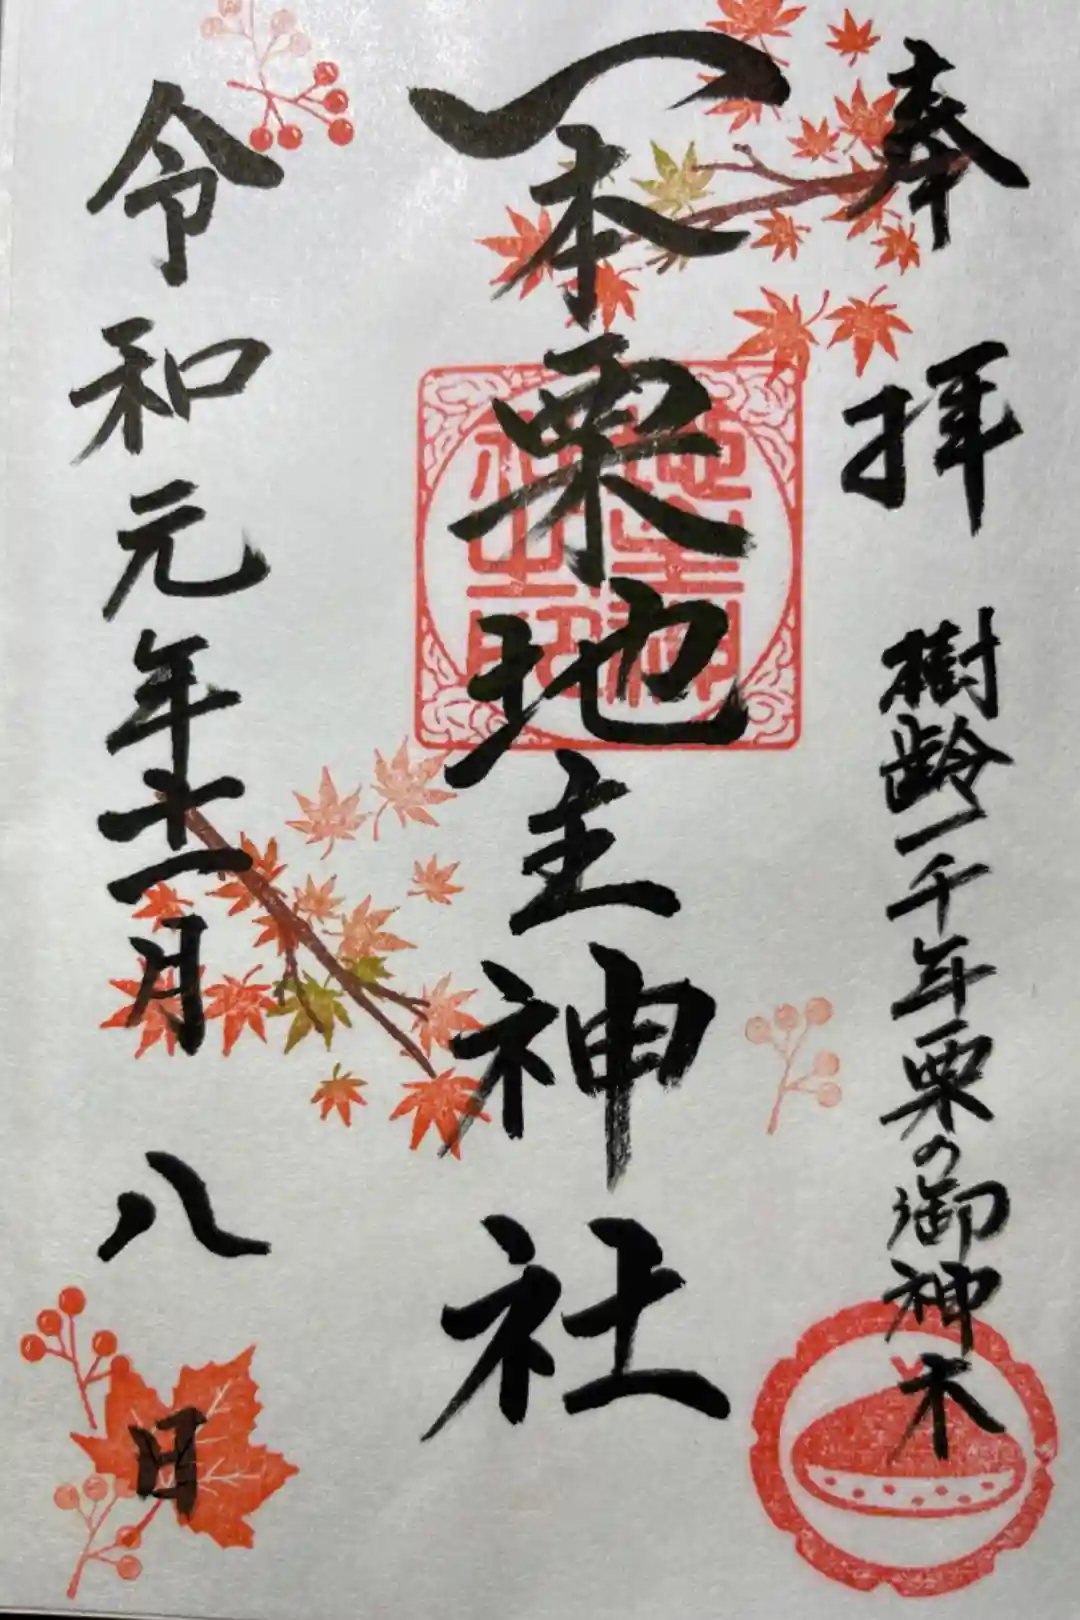 奉拝 樹齢一千年栗の御神木
一本栗地主神社
地主神社之印
令和元年十一月八日